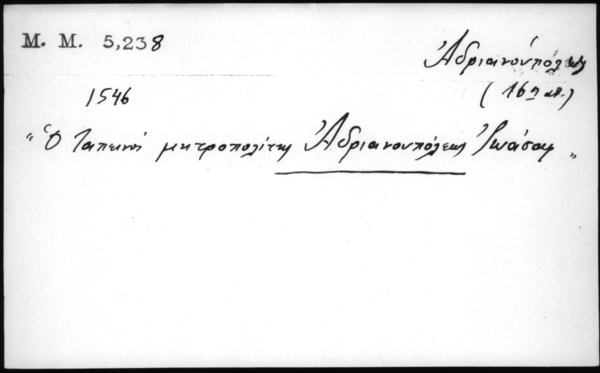 M. M. 5,238
Ἀδριανούπολις
(16ος αἰ.)
1546
"Ὁ Ταπεινὸς μητροπολίτης Ἀδριανουπόλεως Ἰωάσαφ"